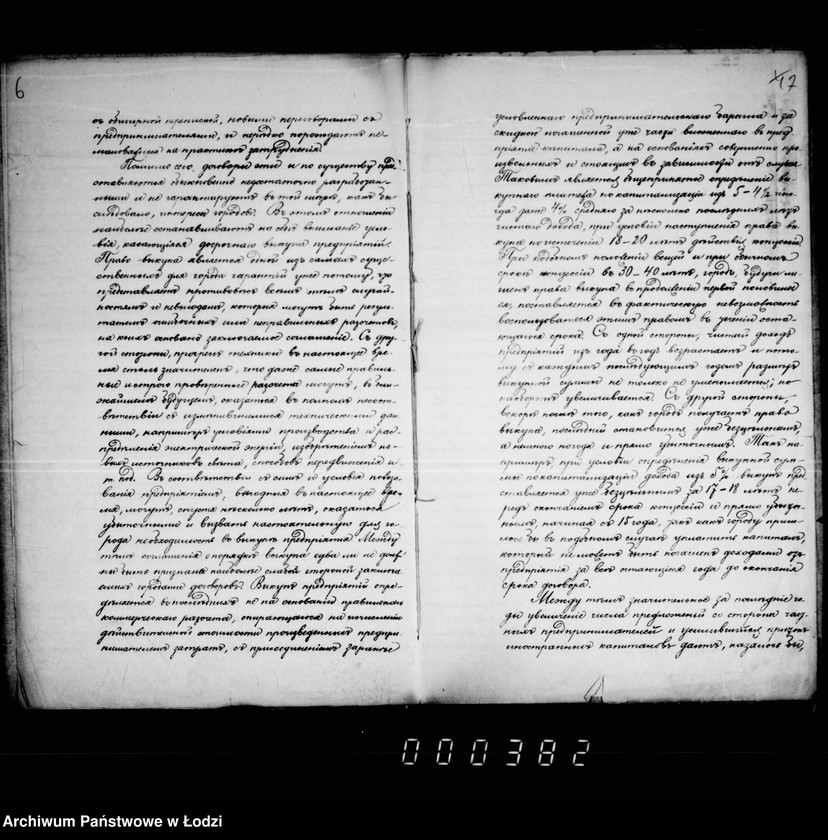 6
съ обширной перепиской, новыми переговорами съ
предпринимателями, и нерѣдко порождаютъ не-
маловажныя на практикѣ затрудненія.
Помимо сего, договоры эти и по существу пред-
ставляются обыкновенно недостаточно разработан-
ными и не гарантируютъ въ той мѣрѣ, какъ бы
слѣдовало, интересы городовъ. Въ этомъ отношеніи
наиболѣе останавливаютъ на себѣ вниманіе усло-
вія, касающіяся досрочнаго выкупа предпріятій.
Право выкупа является одной изъ самыхъ суще-
ственныхъ для города гарантій уже потому, что
представляетъ противовѣсъ всѣмъ тѣмъ случай-
ностямъ и невыгодамъ, которыя могутъ быть резуль-
татомъ ошибочныхъ или неправильныхъ разсчетовъ,
на коихъ основано заключаемое соглашеніе. Съ дру-
гой стороны, прогрессъ техники въ настоящее вре-
мя столь значителенъ, что даже самые правиль-
ные и строго провѣренные разсчеты могутъ, въ бли-
жайшемъ будущемъ, оказаться въ полномъ несоот-
вѣтствіи съ измѣнившимися техническими дан-
ными, напримѣръ условіями производства и рас-
предѣленія электрической энергіи, изобрѣтеніемъ но-
выхъ источниковъ свѣта, способовъ передвиженія и
т. под. Въ соотвѣтствіи съ симъ и условія пользо-
ванія предпріятіемъ, выгодныя въ настоящее вре-
мя, могутъ, спустя нѣсколько лѣтъ, оказаться
убыточными и вызвать настоятельную для го-
рода необходимость въ выкупѣ предпріятія. Между
тѣмъ соглашенія о порядкѣ выкупа едва ли не долж-
ны быть признаны наиболѣе слабой стороной заключа-
емыхъ городами договоровъ. Выкупъ предпріятій опре-
дѣляется въ послѣднихъ не на основаніи правильнаго
коммерческаго разсчета, опирающагося на исчисленіе
дѣйствительной стоимости произведенныхъ предпри-
нимателемъ затратъ, съ присоединеніемъ заранѣе
17
условленнаго предпринимательскаго барыша и за
скидкой погашенной уже части вложеннаго въ пред-
пріятіе капитала, а на основаніяхъ совершенно про-
извольныхъ и стоящихъ въ зависимости отъ случая.
Таковымъ является общепринятое опредѣленіе вы-
купнаго платежа по капитализаціи изъ 5-4½ ино-
гда даже 4% средняго за нѣсколько послѣднихъ лѣтъ
чистаго дохода, при условіи наступленія права вы-
купа по истеченіи 15-20 лѣтъ дѣйствія концессіи.
При подобномъ положеніи вещей и при обычномъ
срокѣ концессіи въ 30-40 лѣтъ, городъ, будучи ли-
шенъ права выкупа въ продолженіи первой половины
ея, поставляется въ фактическую невозможность
воспользоваться этимъ правомъ въ теченіи оста-
ющагося срока. Съ одной стороны, чистый доходъ
предпріятій изъ года въ годъ возрастаетъ и пото-
му съ каждымъ послѣдующимъ годомъ размѣръ
выкупной суммы не только не уменьшается, но
наоборотъ увеличивается. Съ другой стороны,
вскорѣ послѣ того, какъ городъ получаетъ право
выкупа, послѣдній становится уже безцѣльнымъ,
а немного погодя и прямо убыточнымъ. Такъ на-
примѣръ, при условіи опредѣленія выкупной сум-
мы по капитализаціи дохода изъ 5% выкупъ пред-
ставляется уже безцѣльнымъ за 17-18 лѣтъ пе-
редъ окончаніемъ срока концессіи и прямо убыточ-
нымъ, начиная съ 15 года, такъ какъ городу приш-
лось бы въ подобномъ случаѣ уплатить капиталъ,
который не можетъ быть погашенъ доходами отъ
предпріятія за всѣ остающіеся года до окончанія
срока договора.
Между тѣмъ значительное за послѣдніе го-
ды увеличеніе числа предложеній со стороны част-
ныхъ предпринимателей и усилившійся притокъ
иностранныхъ капиталовъ даютъ, казалось бы,
000382
Archiwum Państwowe w Łodzi